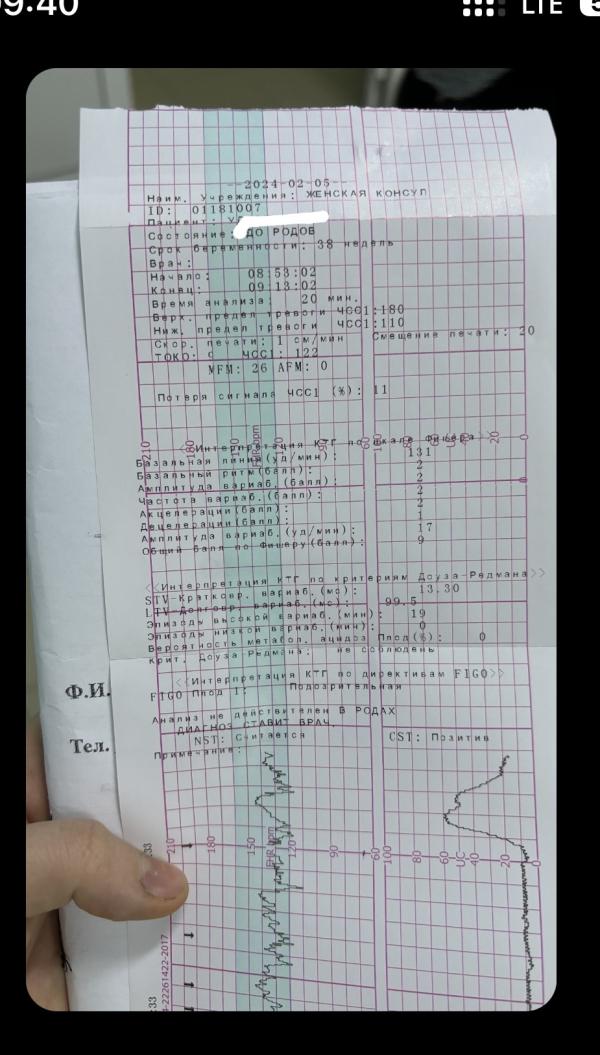 09:40
LTE
--2024-02-05--
Наим. Учреждения: ЖЕНСКАЯ КОНСУЛ
ID: 01181007
Пациент:
Состояние: ДО РОДОВ
Срок беременности: 38 недель
Врач:
Начало: 08:53:02
Конец: 09:13:02
Время анализа: 20 мин.
Верх. предел тревоги ЧСС1:180
Ниж. предел тревоги ЧСС1:110
Скор. печати: 1 см/мин Смещение печати: 20
ТОКО: ЧСС1: 122
MFM: 26 AFM: 0
Потеря сигнала ЧСС1 (%): 11
<<Интерпретация КТГ по шкале Фишера>>
210 180 150 FHR bpm 120 90 60 100 80 60 UC 40 20 0
Базальная линия(уд/мин): 131
Базальный ритм(балл): 2
Амплитуда вариаб.(балл): 2
Частота вариаб.(балл): 2
Акцелерации(балл): 2
Децелерации(балл): 1
Амплитуда вариаб.(уд/мин): 17
Общий балл по Фишеру(балл): 9
<<Интерпретация КТГ по критериям Доуза-Редмана>>
STV-Кратковр. вариаб.(мс): 13.30
LTV-Долговр. вариаб.(мс): 99.5
Эпизоды высокой вариаб.(мин): 19
Эпизоды низкой вариаб.(мин): 0
Вероятность метабол. ацидоз Плод(%): 0
Крит. Доуза-Редмана: не соблюдены
<<Интерпретация КТГ по директивам FIGO>>
FIGO Плод 1: Подозрительная
Анализ не действителен В РОДАХ
ДИАГНОЗ СТАВИТ ВРАЧ.
NST: Считается CST: Позитив
Примечание:
Ф.И.
Тел.
210 180 150 FHR bpm 120 90 60 100 80 60 UC 40 20 0
:33
4-22261422-2017
:33